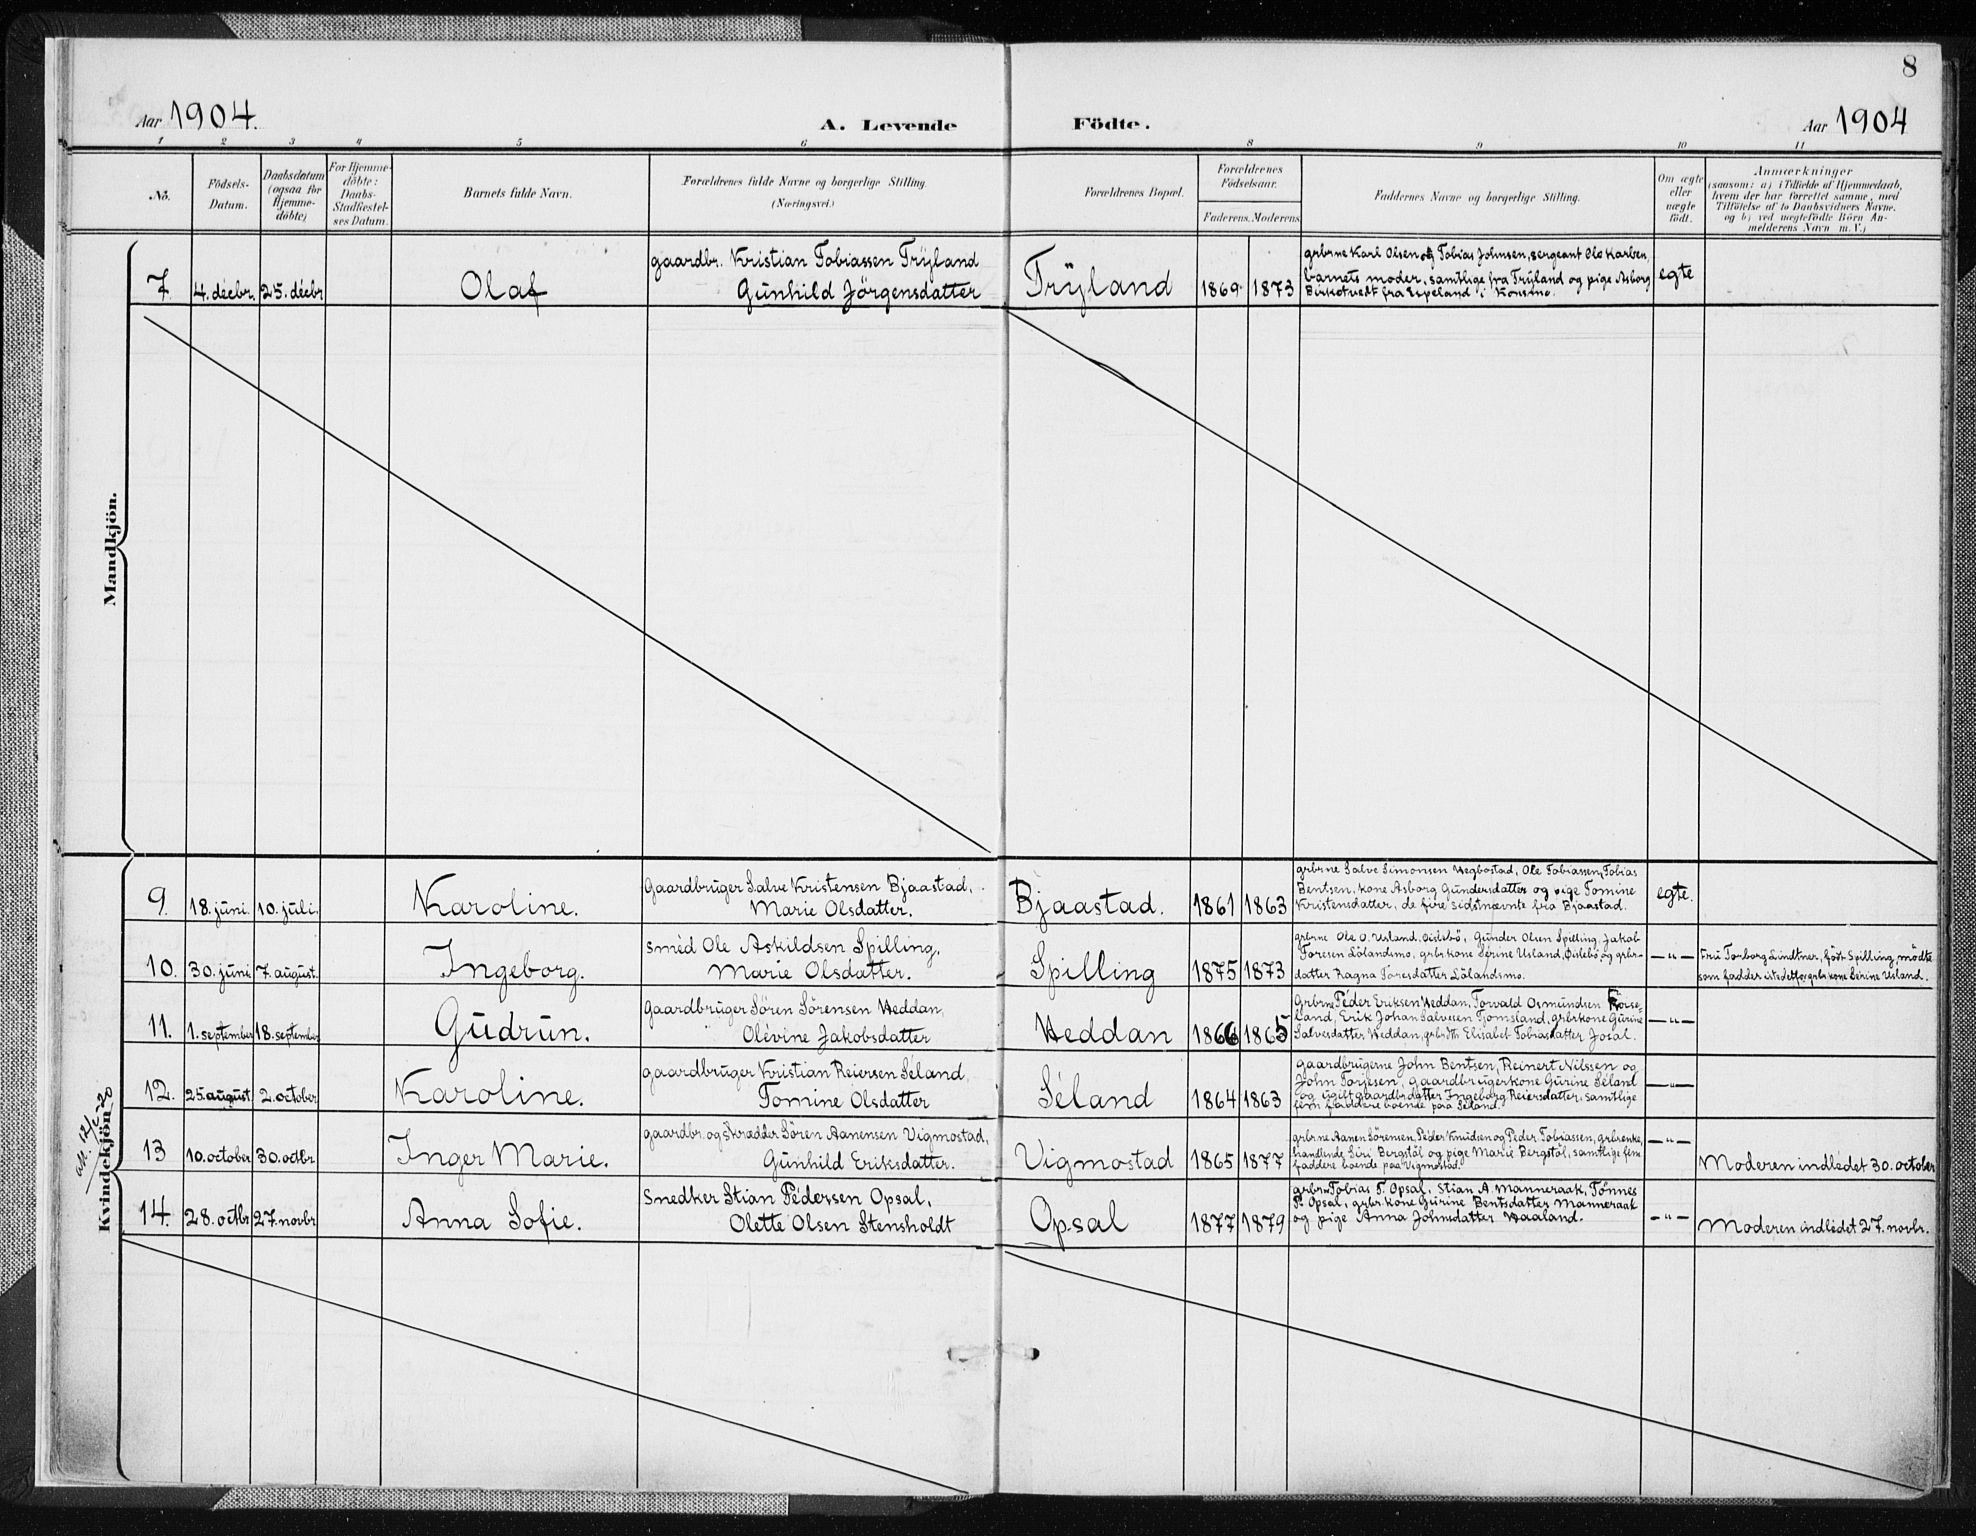 8
Aar 1904.
A. Levende Födte.
Aar 1904
1 2 3 4 5 6 8 9 10 11
No.
Födsels-
Datum.
Daabsdatum
(ogsaa for
Hjemme-
döbte)
For Hjemme-
döbte:
Daabs-
Stadfæstel-
ses Datum.
Barnets fulde Navn.
Forældrenes fulde Navne og borgerlige Stilling.
(Næringsvei.)
Forældrenes Bopæl.
Forældrenes
Födselsaar.
Faderens. Moderens.
Faddernes Navne og borgerlige Stilling.
Om ægte
eller
uægte
födt.
Anmærkninger
(saasom: a) i Tilfælde af Hjemmedaab,
hvem der har forrettet samme, med
Tilföielse af to Daabsvidners Navne.
og b) ved uægtefödte Börn An-
melderens Navn m. V.)
Mandkjön.
7 4. décbr. 25. décbr. Olaf
gaardbr. Kristian Tobiassen Trÿland
Gunhild Jörgensdatter
Trÿland 1869 1873
grbrne Karl Olsen og Tobias Johnsen, sergeant Ole Karben,
barnets moder, samtlige fra Trÿland og pige Asborg
Birketvedt fra Espeland i Konsmo.
egte
Kvindekjön.
att. 12/6 20
9. 18. juni. 10. juli. Karoline.
Gaardbruger Salve Kristensen Bjaastad,
Marie Olsdatter.
Bjaastad. 1861 1863
grbrne Salve Simonsen Hegbostad, Ole Tobiassen, Tobias
Bentsen, kone Asborg Gundersdatter og pige Tomine
Kristensdatter, de fire sidstnævnte fra Bjaastad.
egte.
10. 30. juni 7. august. Ingeborg.
Smed Ole Askildsen Spilling,
Marie Olsdatter.
Spilling 1875 1873
grbrne Ole O. Usland, Öislebö, Gunder Olsen Spilling, Jakob
Toresen Lölandsmo, grbrkone Serine Usland, Öislebö og grbr-
datter Ragna Toresdatter Lölandsmo.
—"—
Fru Torborg Lindtner, födt Spilling, mödte
som fadder istedetfor grbrkone Serine Usland.
11. 1. september 18. september Gudrun.
Gaardbruger Sören Sörensen Heddan,
Olévine Jakobsdatter
Heddan 1866 1865
Grbrne Péder Eriksen Heddan, Torvald Osmundsen Forse-
land, Erik Johan Salvesen Tjomsland, grbrkone Gurine
Salvesdatter Heddan, grbrdtr Elisabet Tobiasdatter Josal.
—"—
12. 25. august 2. october Karoline.
gaardbruger Kristian Reiersen Séland,
Tomine Olsdatter
Séland 1864 1863
gaardbrugerne John Bentsen, Reinert Nilssen og
John Torjesen, gaardbrugerkone Gurine Séland
og ugift gaardbr.datter Ingeborg Reiersdatter, samtlige
fem faddere boende paa Séland.
—"—
13 10. october 30. octbr. Inger Marie.
gaardbr. og Skrædder Sören Aanensen Vigmostad,
Gunhild Eriksdatter.
Vigmostad 1865 1877
grbrne Aanen Sörensen, Péder Knudsen og Peder Tobiassen, grbrenke,
handlende Siri Bergstöl og pige Marie Bergstöl, samtlige fem
faddere boende paa Vigmostad.
—"—
Moderen indlédet 30. october
14. 28. octbr 27. novbr. Anna Sofie.
Snedker Stian Pédersen Opsal,
Olette Olsen Stensholdt
Opsal 1877 1879
grbrne Tobias T. Opsal, Stian A. Manneraak, Tönnes
P. Opsal, grbr.kone Gurine Bentsdatter Manneraak
og pige Anna Johnsdatter Haaland.
—"—
Moderen indlédet 27. novbr.